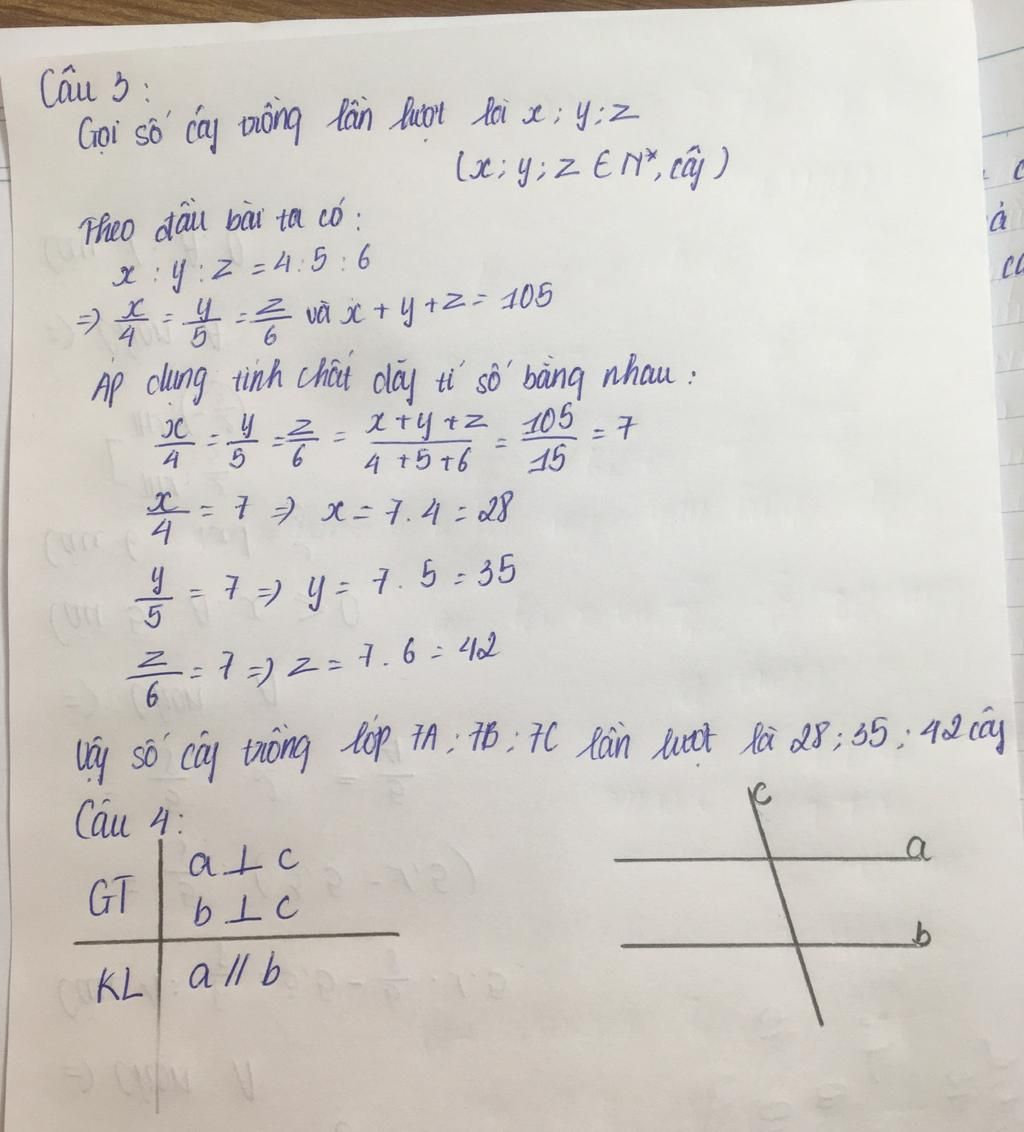 Câu 3:
Gọi số cây trồng lần lượt là x; y; z
(x; y; z ∈ N*, cây)
Theo đầu bài ta có:
x : y : z = 4 : 5 : 6
=> x/4 = y/5 = z/6 và x + y + z = 105
Áp dụng tính chất dãy tỉ số bằng nhau:
x/4 = y/5 = z/6 = (x + y + z)/(4 + 5 + 6) = 105/15 = 7
x/4 = 7 => x = 7.4 = 28
y/5 = 7 => y = 7.5 = 35
z/6 = 7 => z = 7.6 = 42
Vậy số cây trồng lớp 7A; 7B; 7C lần lượt là 28; 35; 42 cây
Câu 4:
GT a ⊥ c
b ⊥ c
KL a // b
c
a
b